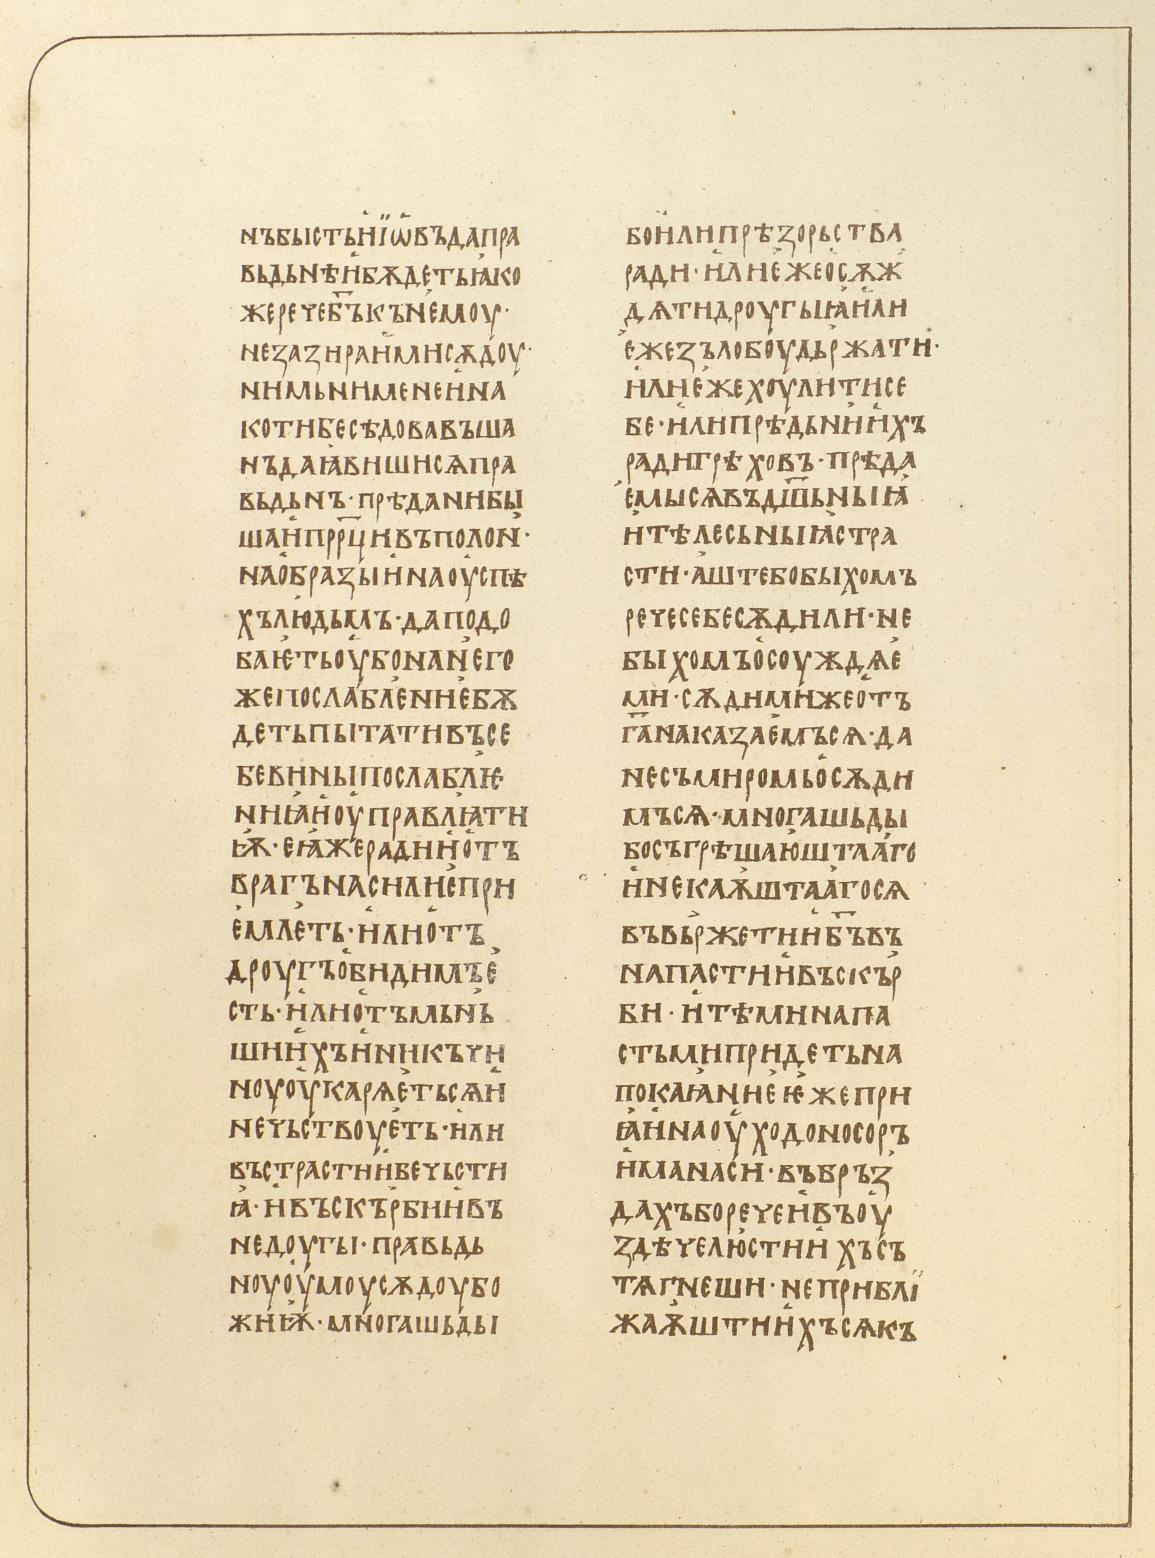 нъбысть҅и҅ї҅ѡвъдапра
вьдьнѣи҅бѫдетьꙗ҅ко
жеречеб҃ъкън҄емоу·
незазираи҅мисѫдоу·
нимьнименеи҅на
котибесѣдовавъша
нъдаꙗ҅вишисѧпра
вьдьнъ·прѣданибы
шаи҅прр҃циивъполон·
нао҅бразꙑи҅нао҅успѣ
хълю҅дьмъ·даподо
баѥтьоу҅бонан҄его
жепослабл҄ениебѫ
детьпытативъсе
бевинꙑпослаблѥ
ниꙗ҅и҅оу҅правлꙗти
ѭ·еꙗжерадии҅о҅тъ
врагънасилиепри
е҅млеть·и҅лио҅тъ
дроугъо҅бидимъе҅
сть·и҅лио҅тъмьнь
шии҅хъи҅никъчи
ноуоу҅карѧе҅тьсѧи҅
нечьствоуе҅ть·или
въстрастии҅бечьсти
ꙗ҅·и҅въскърбии҅въ
недоугы·правьдь
ноуоу҅моусѫдоубо
жиѭ·многашьды
бои҅липрѣзорьства
ради·и҅лиежео҅сѫж
дѧтидроугыꙗ҅и҅ли
е҅жезълобоудьржати·
и҅лие҅жехоулитисе
бе·и҅липрѣдьнии҅хъ
радигрѣховъ·прѣда
е҅мысѧвъдш҃ьныꙗ҅
и҅тѣлесьныꙗ҅стра
сти·а҅штебобыхомъ
речесебесѫдили·не
быхомъо҅соуждѧе
ми·сѫдимиижео҅тъ
га҃наказае҅мъсѧ·да
несъмиромьо҅сѫди
мъсѧ·многашьды
босъгрѣшаюштааго
и҅некаѭштаагосѧ
въвьржетии҅б҃ъвъ
напастии҅въскър
би·и҅тѣминапа
стьмипридетьна
покаꙗниеѥжепри
ꙗ҅и҅наоу҅ходоносоръ
и҅манаси·въбръз
дахъборечеи҅въоу
здѣчел҄юстии҅хъсъ
тѧгнеши·неприблї
жаѭштии҅хъсѧкъ